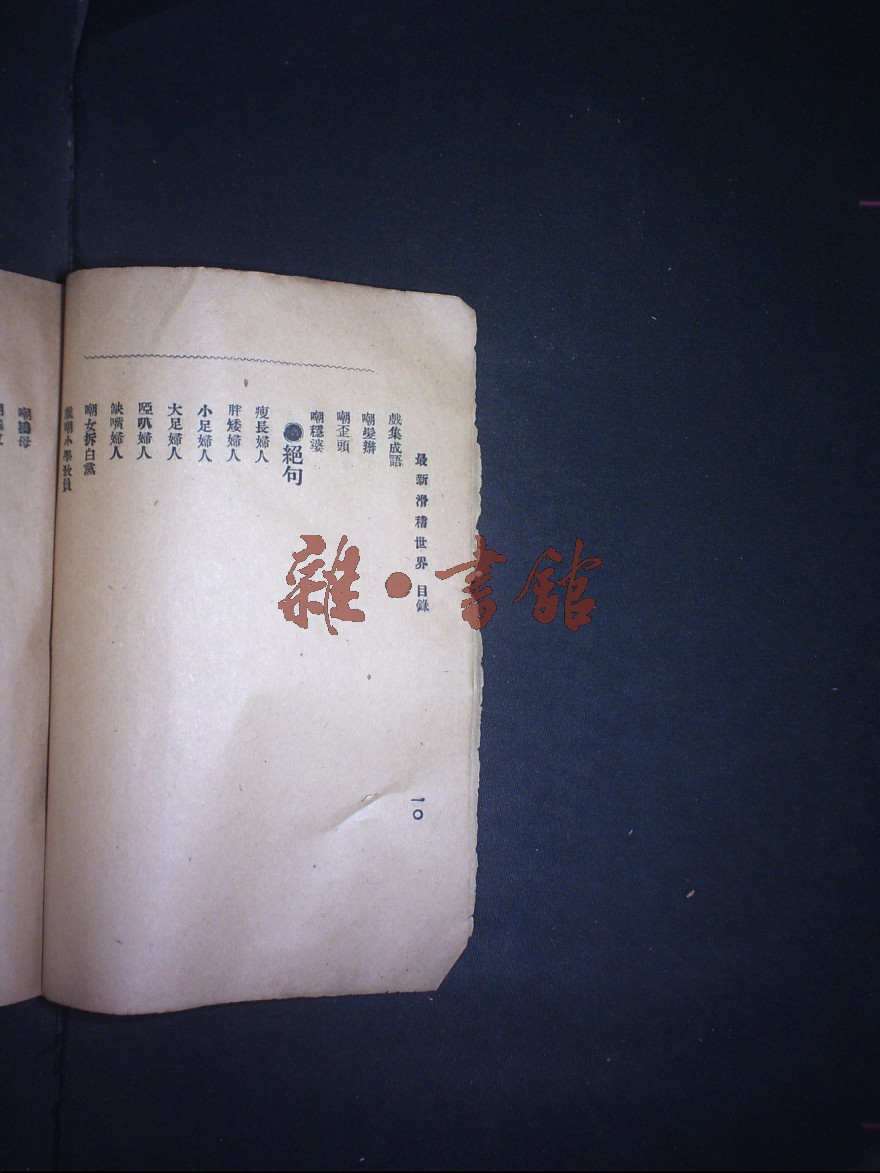 最新滑稽世界 目錄
一〇
戲集成語
嘲髮辮
嘲歪頭
嘲穩婆
●絕句
瘦長婦人
胖矮婦人
小足婦人
大足婦人
啞叭婦人
缺嘴婦人
嘲女拆白黨
戲嘲小學教員
嘲鴇母
雜·書館